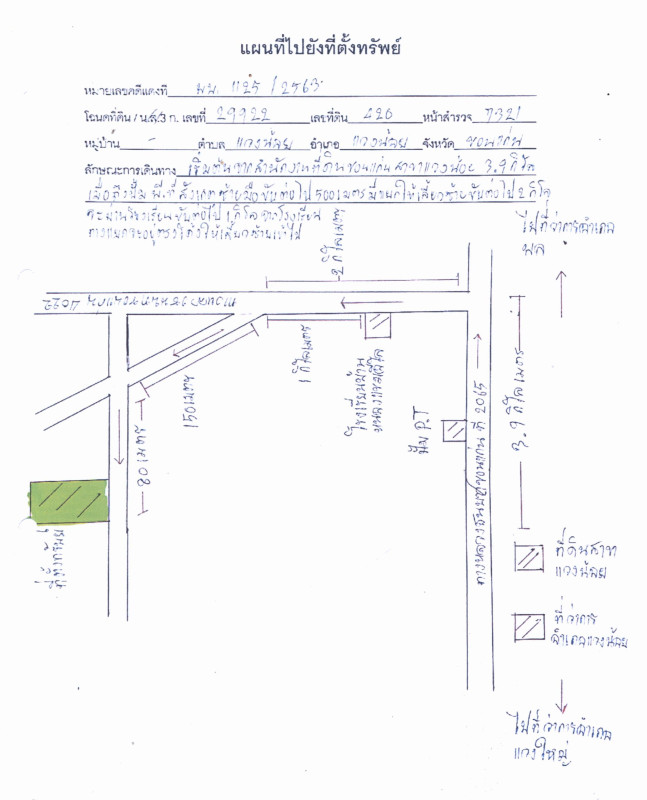 แผนที่ไปยังที่ตั้งทรัพย์
หมายเลขคดีแดงที่ ผบ. 1125 / 2563
โฉนดที่ดิน / น.ส.3 ก. เลขที่ 29922 เลขที่ดิน 420 หน้าสำรวจ 7321
หมู่บ้าน - ตำบล แวงน้อย อำเภอ แวงน้อย จังหวัด ขอนแก่น
ลักษณะการเดินทาง เริ่มต้นจากสำนักงานที่ดินขอนแก่น สาขาแวงน้อย 3.9 กิโล
เมื่อถึงปั๊ม พี.ที สังเกตซ้ายมือขับต่อไป 500 เมตร มีแยกให้เลี้ยวซ้ายขับต่อไป 2 กิโล
จะผ่านโรงเรียนขับต่อไป 1 กิโล จากโรงเรียน
ทางแยกจะอยู่ตรงโค้งให้เลี้ยวซ้ายเข้าไป
ไปที่ว่าการอำเภอ
พล
2 กิโลเมตร
1 กิโลเมตร
150 เมตร
โรงเรียนบ้าน
ปั๊ม P.T
ทางหลวงชนบทขอนแก่น ที่ 2065
3.9 กิโลเมตร
80 เมตร
ที่ตั้งทรัพย์
ที่ดินสาขา
แวงน้อย
ที่ว่าการ
อำเภอแวงน้อย
ไปที่ว่าการอำเภอ
แวงใหญ่